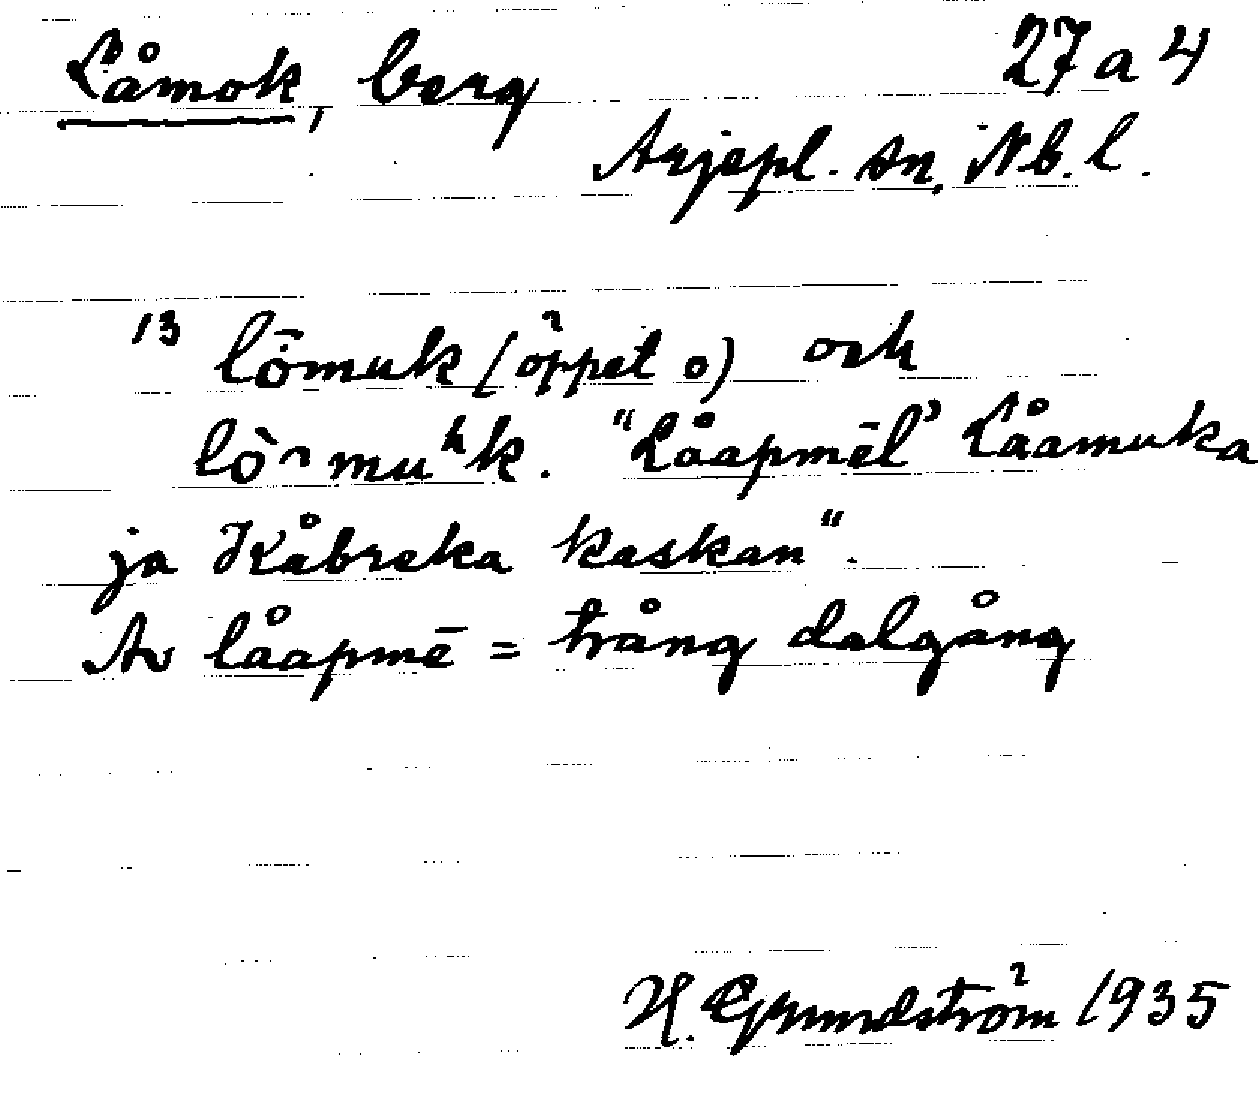 Låmok, berg 27 a 4
Arjepl. sn, Nb. l.
13 lō̇muk (öppet o) och
lò̀ muʰk. "Låapmēl' Låamuka
ja Kåbreka kaskan".
Av låapmē = trång dalgång
H. Grundström 1935